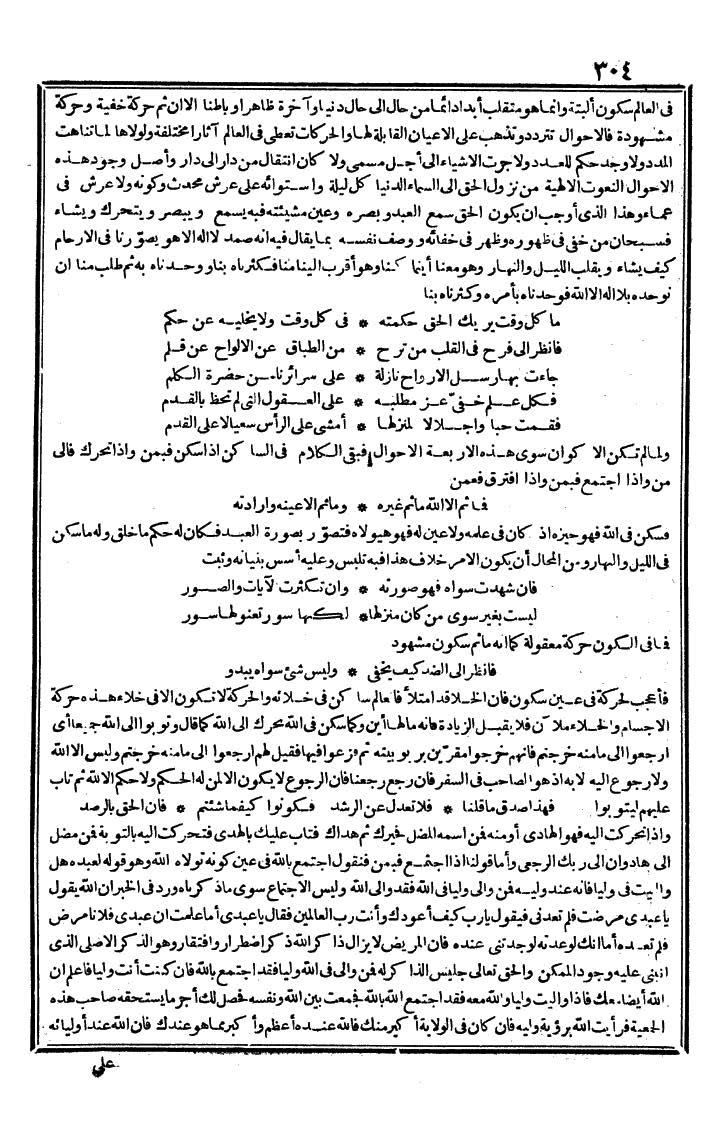 ٣٠٤
فى العالم سكون ألبتة وانما هو متقلب أبدا دائما من حال الى حال دنيا وآخرة ظاهرا وباطنا الا ان ثم حركة خفية وحركة
مشهودة فالاحوال تتردد وتذهب على الاعيان القابلة لها والحركات تعطى فى العالم آثارا مختلفة ولولاها لما تناهت
المدد ولا وجد حكم للعدد ولا جرت الاشياء الى أجل مسمى ولا كان انتقال من دار الى دار وأصل وجود هذه
الاحوال النعوت الالهية من نزول الحق الى السماء الدنيا كل ليلة واستوائه على عرش محدث وكونه ولا عرش فى
عماء وهذا الذى أوجب ان يكون الحق سمع العبد وبصره وعين مشيئته فبه يسمع ويبصر ويتحرك ويشاء
فسبحان من خفى فى ظهوره وظهر فى خفائه ووصف نفسه بما يقال فيه انه صمد لا اله الا هو يصوّرنا فى الارحام
كيف يشاء ويقلب الليل والنهار وهو معنا أينما كنا وهو أقرب الينا منا فكثرناه بنا ووحدناه به ثم طلب منا ان
نوحده بلا اله الا الله فوحدناه بأمره وكثرناه بنا
ما كل وقت يريك الحق حكمته * فى كل وقت ولا يخليه عن حكم
فانظر الى فرح فى القلب من ترح * من الطباق عن الالواح عن قلم
جاءت بها رسل الارواح نازلة * على سرائرنا من حضرة الكلم
فكل علم خفىّ عز مطلبه * على العقول التى لم تحظ بالقدم
فقمت حبا واجلالا لمنزلها * أمشى على الرأس سعيا لا على القدم
ولما لم تكن الاكوان سوى هذه الاربعة الاحوال فبقى الكلام فى الساكن اذا سكن فيمن واذا تحرك فالى
من واذا اجتمع فبمن واذا افترق فعمن
فما ثم الا الله ما ثم غيره * وما ثم الا عينه وارادته
فسكن فى الله فهو حيزه اذ كان فى علمه ولا عين له فهو هيولاه فتصوّر بصورة العبد فكان له حكم ما خلق وله ما سكن
فى الليل والنهار ومن المحال أن يكون الامر خلاف هذا فبه تلبس وعليه أسس بنيانه وثبت
فان شهدت سواه فهو صورته * وان تكثرت لآيات والصور
ليست بغير سوى من كان منزلها * لكنها سور تعنو لها سور
فما فى الكون حركة معقولة كما انه ما ثم سكون مشهود
فانظر الى الضد كيف يخفى * وليس شئ سواه يبدو
فأعجب لحركة فى عين سكون فان الخلا قد امتلأ فالعالم ساكن فى خلائه والحركة لا تكون الا فى خلاء هذه حركة
الاجسام والخلاء ملآن فلا يقبل الزيادة فانه ما لها أين وكما سكن فى الله تحرك الى الله كما قال وتوبوا الى الله جميعا أى
ارجعوا الى ما منه خرجتم فانهم خرجوا مقرّين بربوبيته ثم نزعوا فيها فقيل لهم ارجعوا الى ما منه خرجتم وليس الا الله
ولا رجوع اليه لا به اذ هو الصاحب فى السفر فان رجع رجعنا فان الرجوع لا يكون الا لمن له الحكم ولا حكم الا لله ثم تاب
عليهم ليتوبوا فهذا صدق ما قلنا * فلا تعدل عن الرشد فكونوا كيفما شئتم * فان الحق بالرصد
واذا تحركت اليه فهو الهادى أو منه فمن اسمه المضل خيرك ثم هداك فتاب عليك بالهدى فتحركت اليه بالتوبة فمن مضل
الى هاد وان الى ربك الرجعى وأما قولنا اذا اجتمع فيمن فنقول اجتمع بالله فى عين كونه تولاه الله وهو قوله لعبده هل
واليت فىّ وليا فانه عند وليه فمن والى وليا فى الله فقد والى الله وليس الاجتماع سوى ما ذكرناه ورد فى الخبر ان الله يقول
يا عبدى مرضت فلم تعدنى فيقول يا رب كيف أعودك وأنت رب العالمين فقال يا عبدى أما علمت ان عبدى فلانا مرض
فلم تعده أما انك لو عدته لوجدتنى عنده فان المريض لا يزال ذاكرا لله ذكر اضطرار وافتقار وهو الذكر الاصلى الذى
انبنى عليه وجود الممكن والحق تعالى جليس الذاكر له فمن والى فى الله وليا فقد اجتمع بالله فان كنت أنت وليا فاعلم ان
الله أيضا معك فاذا واليت وليا والله معه فقد اجتمع الله بالله فجمعت بين الله ونفسه فحصل لك أجر ما يستحقه صاحب هذه
الجمعية فرأيت الله برؤية وليه فان كان فى الولاية أكبر منك فالله عنده أعظم وأكبر مما هو عندك فان الله عند أوليائه
على